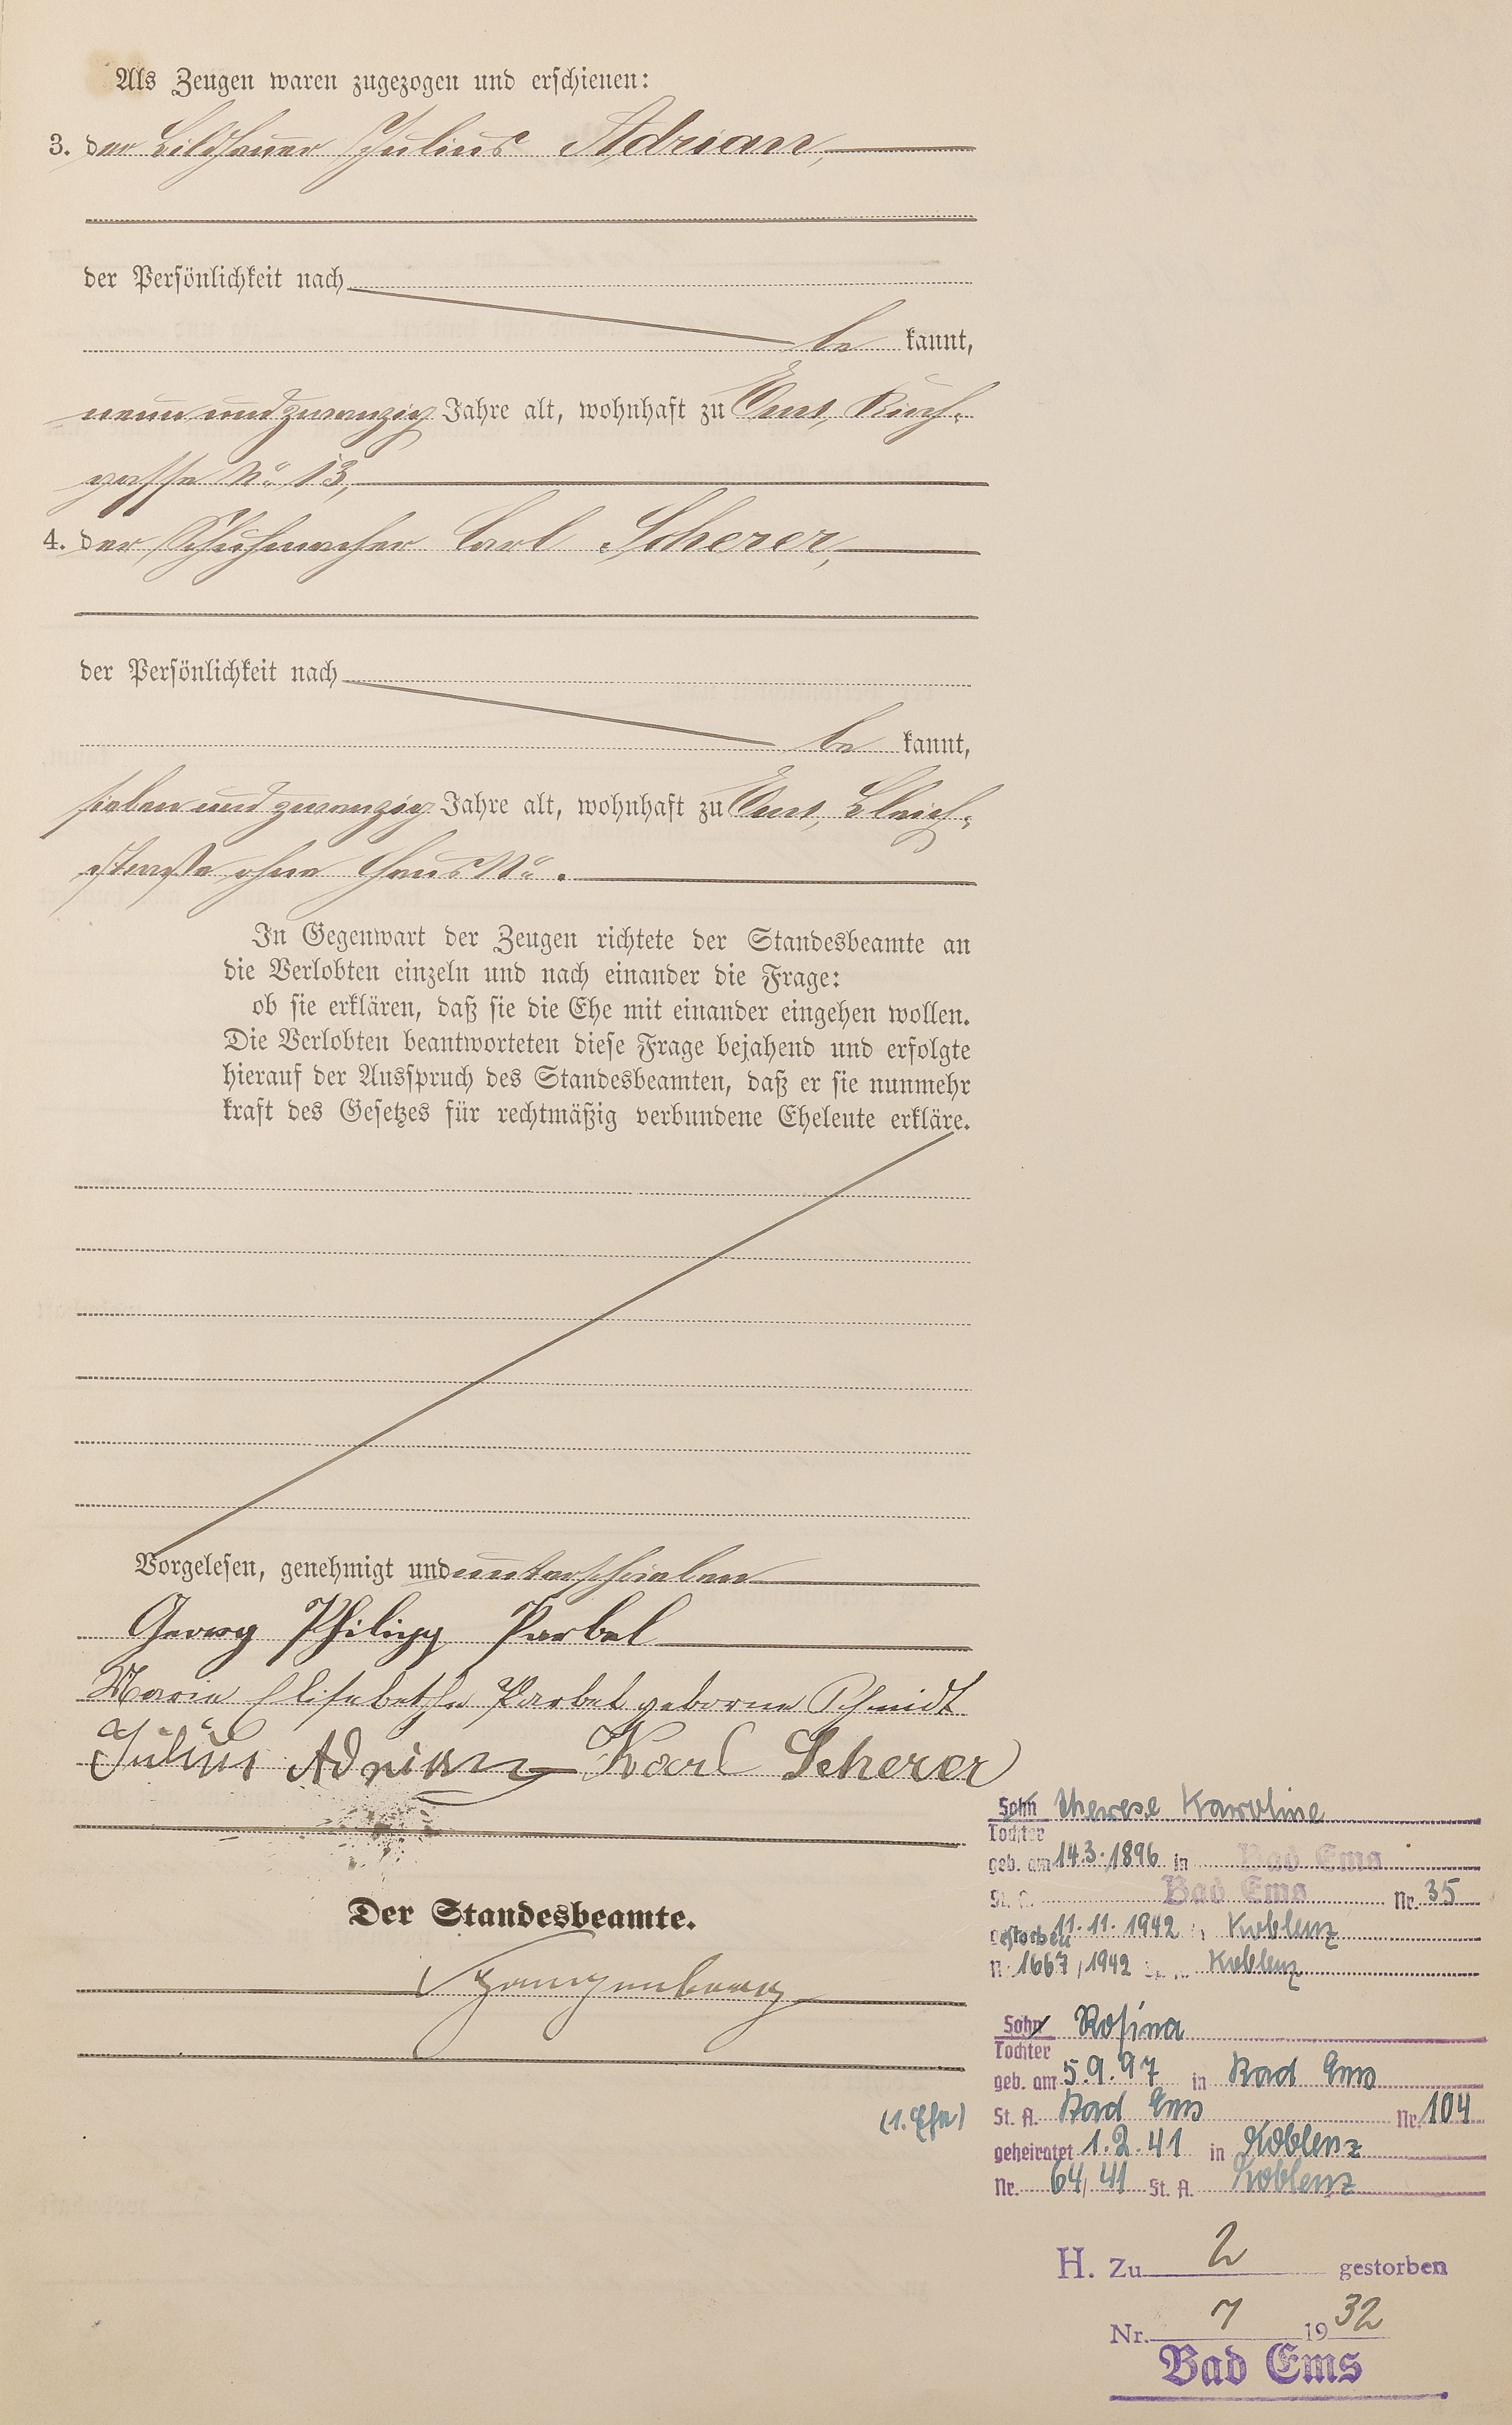 Als Zeugen waren zugezogen und erschienen:
3. der Bildhauer Julius Adrian,
der Persönlichkeit nach
be kannt,
neun und zwanzig Jahre alt, wohnhaft zu Ems, Kirch-
gasse No 13,
4. der Schuhmacher Carl Scherer,
der Persönlichkeit nach
be kannt,
sieben und zwanzig Jahre alt, wohnhaft zu Ems, Bleich-
straße ohne Haus No.
In Gegenwart der Zeugen richtete der Standesbeamte an
die Verlobten einzeln und nach einander die Frage:
ob sie erklären, daß sie die Ehe mit einander eingehen wollen.
Die Verlobten beantworteten diese Frage bejahend und erfolgte
hierauf der Ausspruch des Standesbeamten, daß er sie nunmehr
kraft des Gesetzes für rechtmäßig verbundene Eheleute erkläre.
Vorgelesen, genehmigt und unterschrieben
Georg Philipp Parbel
Maria Elisabetha Parbel geborne Schmidt
Julius Adrian Karl Scherer
Der Standesbeamte.
Sohn Therese Karoline
Tochter
geb. am 14.3.1896 in Bad Ems
St. A. Bad Ems Nr. 35
gestorben 11.11.1942 Koblenz
Nr. 1667/1942 Koblenz
Sohn Rosina
Tochter
geb. am 5.9.97 in Bad Ems
(1. Ehe) St. A. Bad Ems Nr. 104
geheiratet 1.2.41 in Koblenz
Nr. 64/41 St. A. Koblenz
H. Zu 2 gestorben
Nr. 7 1932
Bad Ems